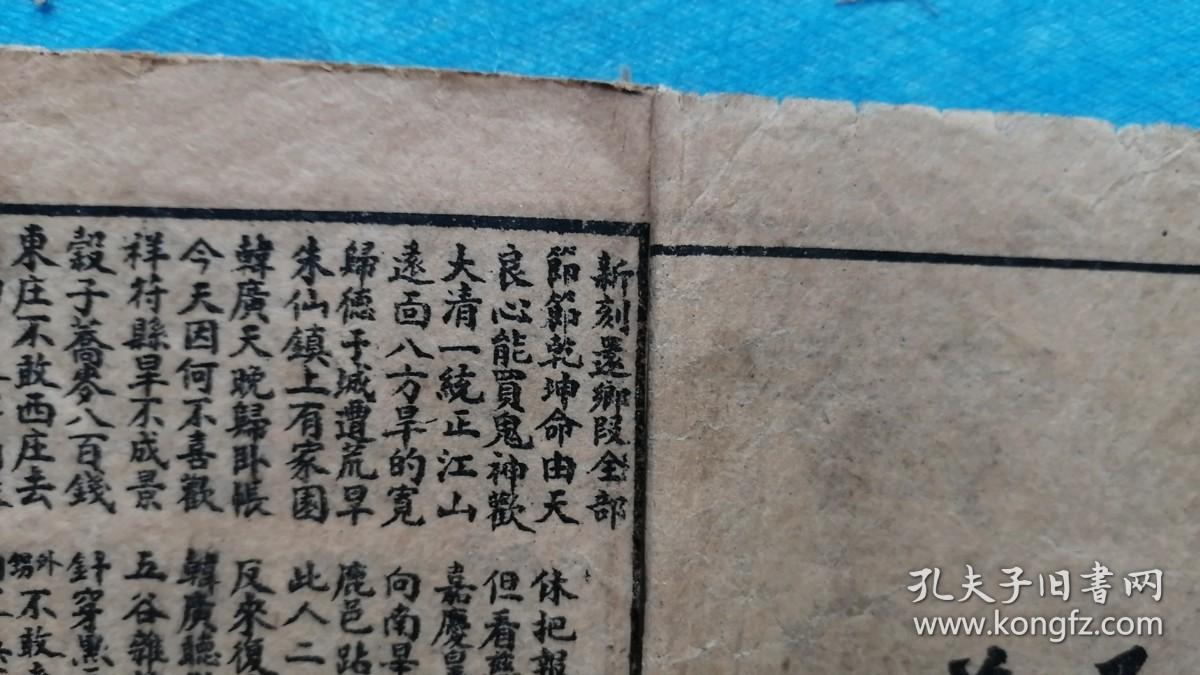 新刻還鄉段全部
節節乾坤命由天
休把報
良心能買鬼神歡
但看
大清一統正江山
嘉慶皇
遠面八方旱的寬
向南旱
歸德于城遭荒旱
鹿邑
朱仙鎮上有家園
此人二
韓廣天晚歸卧帳
反來復
今天因何不喜歡
韓廣聽
祥符縣旱不成景
五谷雜
穀子蕎麥八百錢
針穿黑
東庄不敢西庄去
外
不敢
孔夫子旧书网
www.kongfz.com